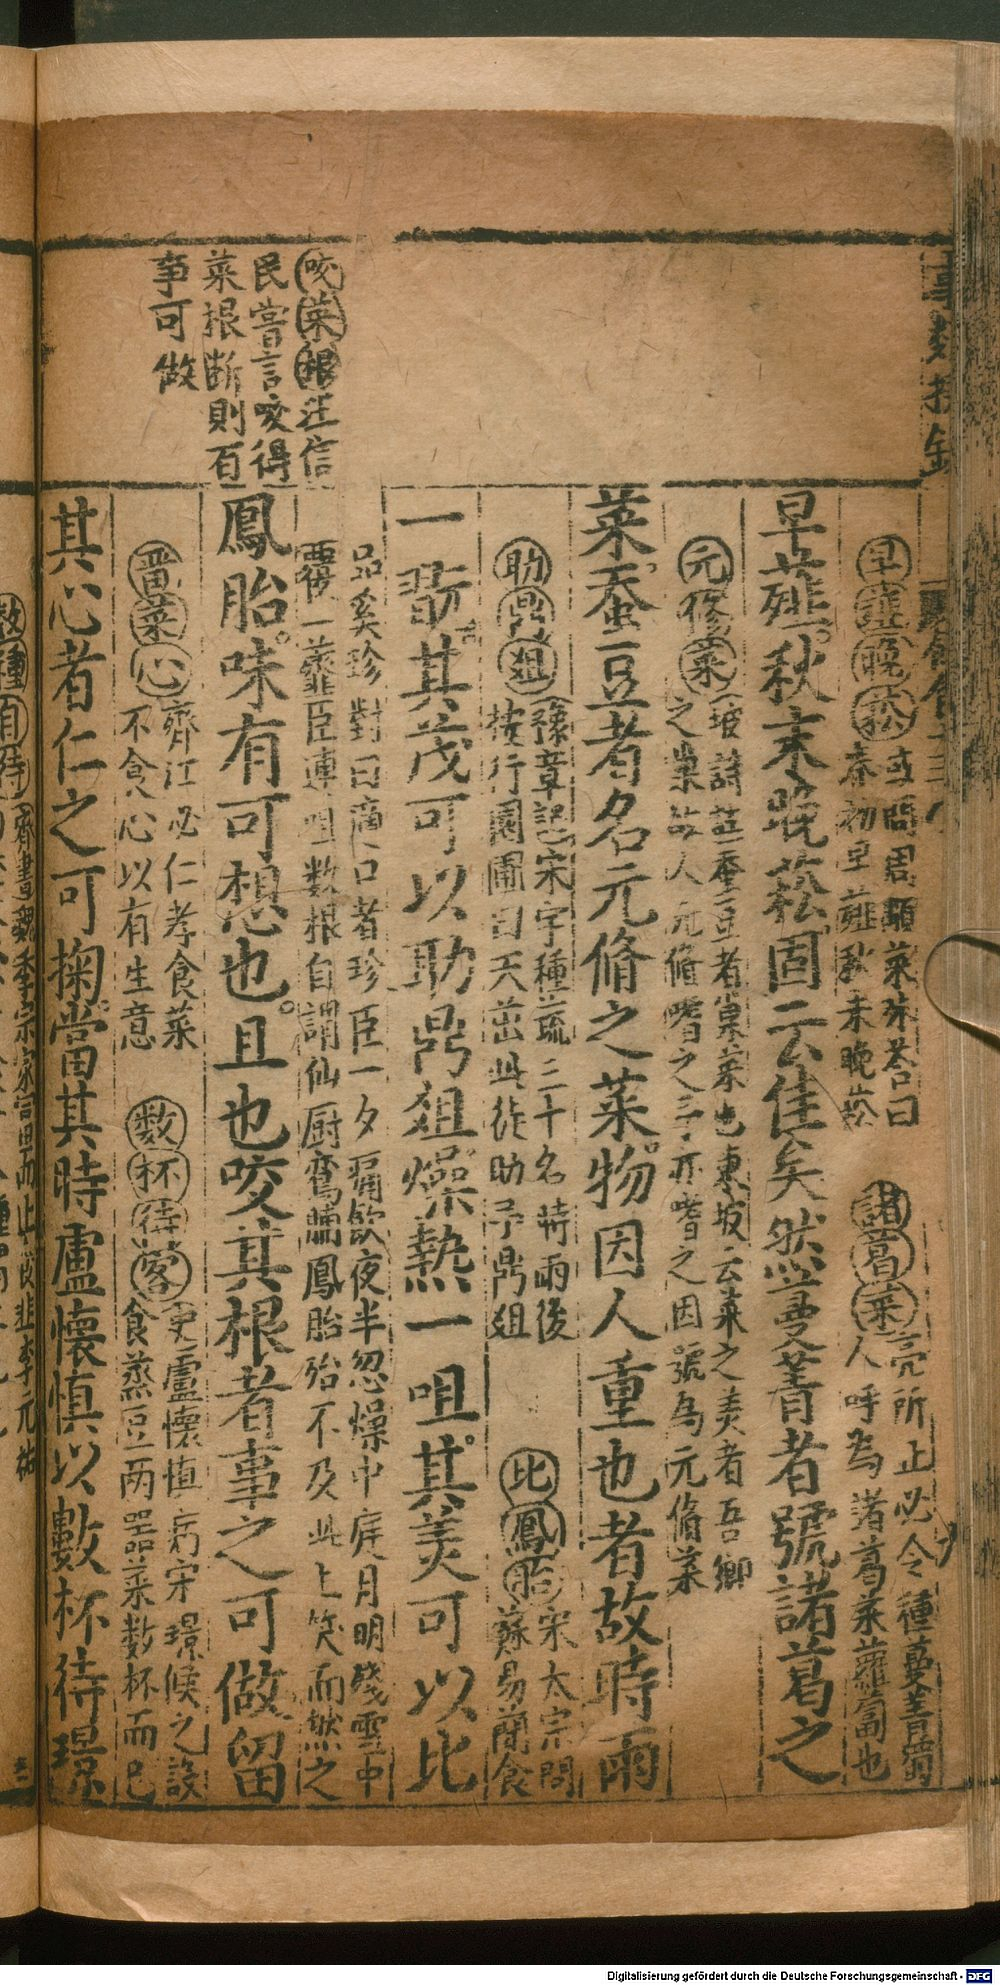 咬菜根汪信
民嘗言咬得
菜根斷則百
事可做
早韮晚菘或問周顒菜味荅曰
春初早韮秋末晚菘
諸葛菜亮所止必令種蔓菁
人呼為諸葛菜蘿蔔也
早韮秋末晚菘固云佳矣然蔓菁者號諸葛之
元修菜坡詩蚕豆者巢菜也東坡云菜之美者吾鄉
之巢故人元脩嗜之予亦嗜之因號為元脩菜
菜蚕豆者名元脩之菜物因人重也者故時雨
助鼎俎豫章記宋字種蔬三十名時雨後
按行園圃曰天茁此徒助予鼎俎
比鳳胎宋太宗問
蘇易簡食
一霑其茂可以助鼎俎燥熱一咀其美可以比
品奚珍對曰適口者珍臣一夕痛飲夜半忽燥中庭月明殘雪中
覆一虀臣連咀數根自謂仙厨鸞脯鳳胎殆不及此上笑而然之
鳳胎味有可想也且也咬其根者事之可做留
畱菜心齊江必仁孝食菜
不食心以有生意
数杯待客吏盧懷慎病宋璟候之設
食蒸豆两器菜数杯而已
其心者仁之可掬當其時盧懷慎以數杯待璟
Digitalisierung gefördert durch die Deutsche Forschungsgemeinschaft - DFG